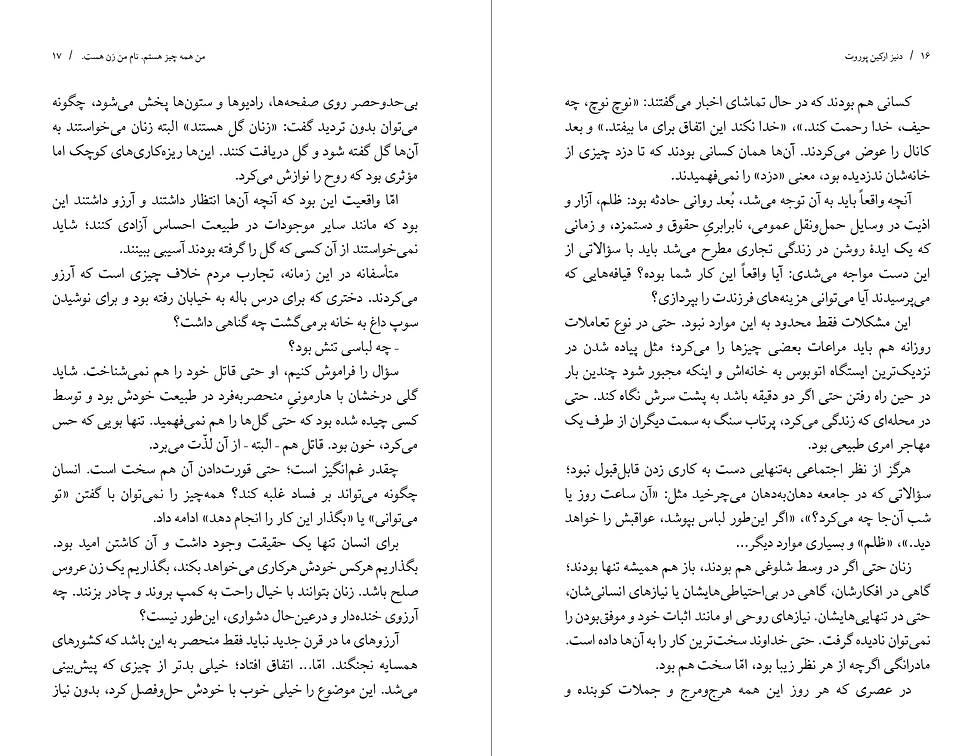 ۱۶ / دنیز ارکین پوروت
کسانی هم بودند که در حال تماشای اخبار می‌گفتند: «نوچ نوچ، چه
حیف، خدا رحمت کند.»، «خدا نکند این اتفاق برای ما بیفتد.» و بعد
کانال را عوض می‌کردند. آن‌ها همان کسانی بودند که تا دزد چیزی از
خانه‌شان ندزدیده بود، معنی «دزد» را نمی‌فهمیدند.
آنچه واقعاً باید به آن توجه می‌شد، بُعد روانی حادثه بود: ظلم، آزار و
اذیت در وسایل حمل‌ونقل عمومی، نابرابریِ حقوق و دستمزد، و زمانی
که یک ایدهٔ روشن در زندگی تجاری مطرح می‌شد باید با سؤالاتی از
این دست مواجه می‌شدی: آیا واقعاً این کار شما بوده؟ قیافه‌هایی که
می‌پرسیدند آیا می‌توانی هزینه‌های فرزندت را بپردازی؟
این مشکلات فقط محدود به این موارد نبود. حتی در نوع تعاملات
روزانه هم باید مراعات بعضی چیزها را می‌کرد؛ مثل پیاده شدن در
نزدیک‌ترین ایستگاه اتوبوس به خانه‌اش و اینکه مجبور شود چندین بار
در حین راه رفتن حتی اگر دو دقیقه باشد به پشت سرش نگاه کند. حتی
در محله‌ای که زندگی می‌کرد، پرتاب سنگ به سمت دیگران از طرف یک
مهاجر امری طبیعی بود.
هرگز از نظر اجتماعی به‌تنهایی دست به کاری زدن قابل‌قبول نبود؛
سؤالاتی که در جامعه دهان‌به‌دهان می‌چرخید مثل: «آن ساعت روز یا
شب آن‌جا چه می‌کرد؟»، «اگر این‌طور لباس بپوشد، عواقبش را خواهد
دید.»، «ظلم» و بسیاری موارد دیگر...
زنان حتی اگر در وسط شلوغی هم بودند، باز هم همیشه تنها بودند؛
گاهی در افکارشان، گاهی در بی‌احتیاطی‌هایشان یا نیازهای انسانی‌شان،
حتی در تنهایی‌هایشان. نیازهای روحی او مانند اثبات خود و موفق‌بودن را
نمی‌توان نادیده گرفت. حتی خداوند سخت‌ترین کار را به آن‌ها داده است.
مادرانگی اگرچه از هر نظر زیبا بود، امّا سخت هم بود.
در عصری که هر روز این همه هرج‌ومرج و جملات کوبنده و
من همه چیز هستم، نام من زن هست. / ۱۷
بی‌حدوحصر روی صفحه‌ها، رادیوها و ستون‌ها پخش می‌شود، چگونه
می‌توان بدون تردید گفت: «زنان گل هستند» البته زنان می‌خواستند به
آن‌ها گل گفته شود و گل دریافت کنند. این‌ها ریزه‌کاری‌های کوچک اما
مؤثری بود که روح را نوازش می‌کرد.
امّا واقعیت این بود که آنچه آن‌ها انتظار داشتند و آرزو داشتند این
بود که مانند سایر موجودات در طبیعت احساس آزادی کنند؛ شاید
نمی‌خواستند از آن کسی که گل را گرفته بودند آسیبی ببینند.
متأسفانه در این زمانه، تجارب مردم خلاف چیزی است که آرزو
می‌کردند. دختری که برای درس باله به خیابان رفته بود و برای نوشیدن
سوپ داغ به خانه برمی‌گشت چه گناهی داشت؟
- چه لباسی تنش بود؟
سؤال را فراموش کنیم، او حتی قاتل خود را هم نمی‌شناخت. شاید
گلی درخشان با هارمونیِ منحصربه‌فرد در طبیعت خودش بود و توسط
کسی چیده شده بود که حتی گل‌ها را هم نمی‌فهمید. تنها بویی که حس
می‌کرد، خون بود. قاتل هم - البته - از آن لذّت می‌برد.
چقدر غم‌انگیز است؛ حتی قورت‌دادن آن هم سخت است. انسان
چگونه می‌تواند بر فساد غلبه کند؟ همه‌چیز را نمی‌توان با گفتن «تو
می‌توانی» یا «بگذار این کار را انجام دهد» ادامه داد.
برای انسان تنها یک حقیقت وجود داشت و آن کاشتن امید بود.
بگذاریم هرکس خودش هرکاری می‌خواهد بکند، بگذاریم یک زن عروس
صلح باشد. زنان بتوانند با خیال راحت به کمپ بروند و چادر بزنند. چه
آرزوی خنده‌دار و درعین‌حال دشواری، این‌طور نیست؟
آرزوهای ما در قرن جدید نباید فقط منحصر به این باشد که کشورهای
همسایه نجنگند. امّا... اتفاق افتاد؛ خیلی بدتر از چیزی که پیش‌بینی
می‌شد. این موضوع را خیلی خوب با خودش حل‌وفصل کرد، بدون نیاز